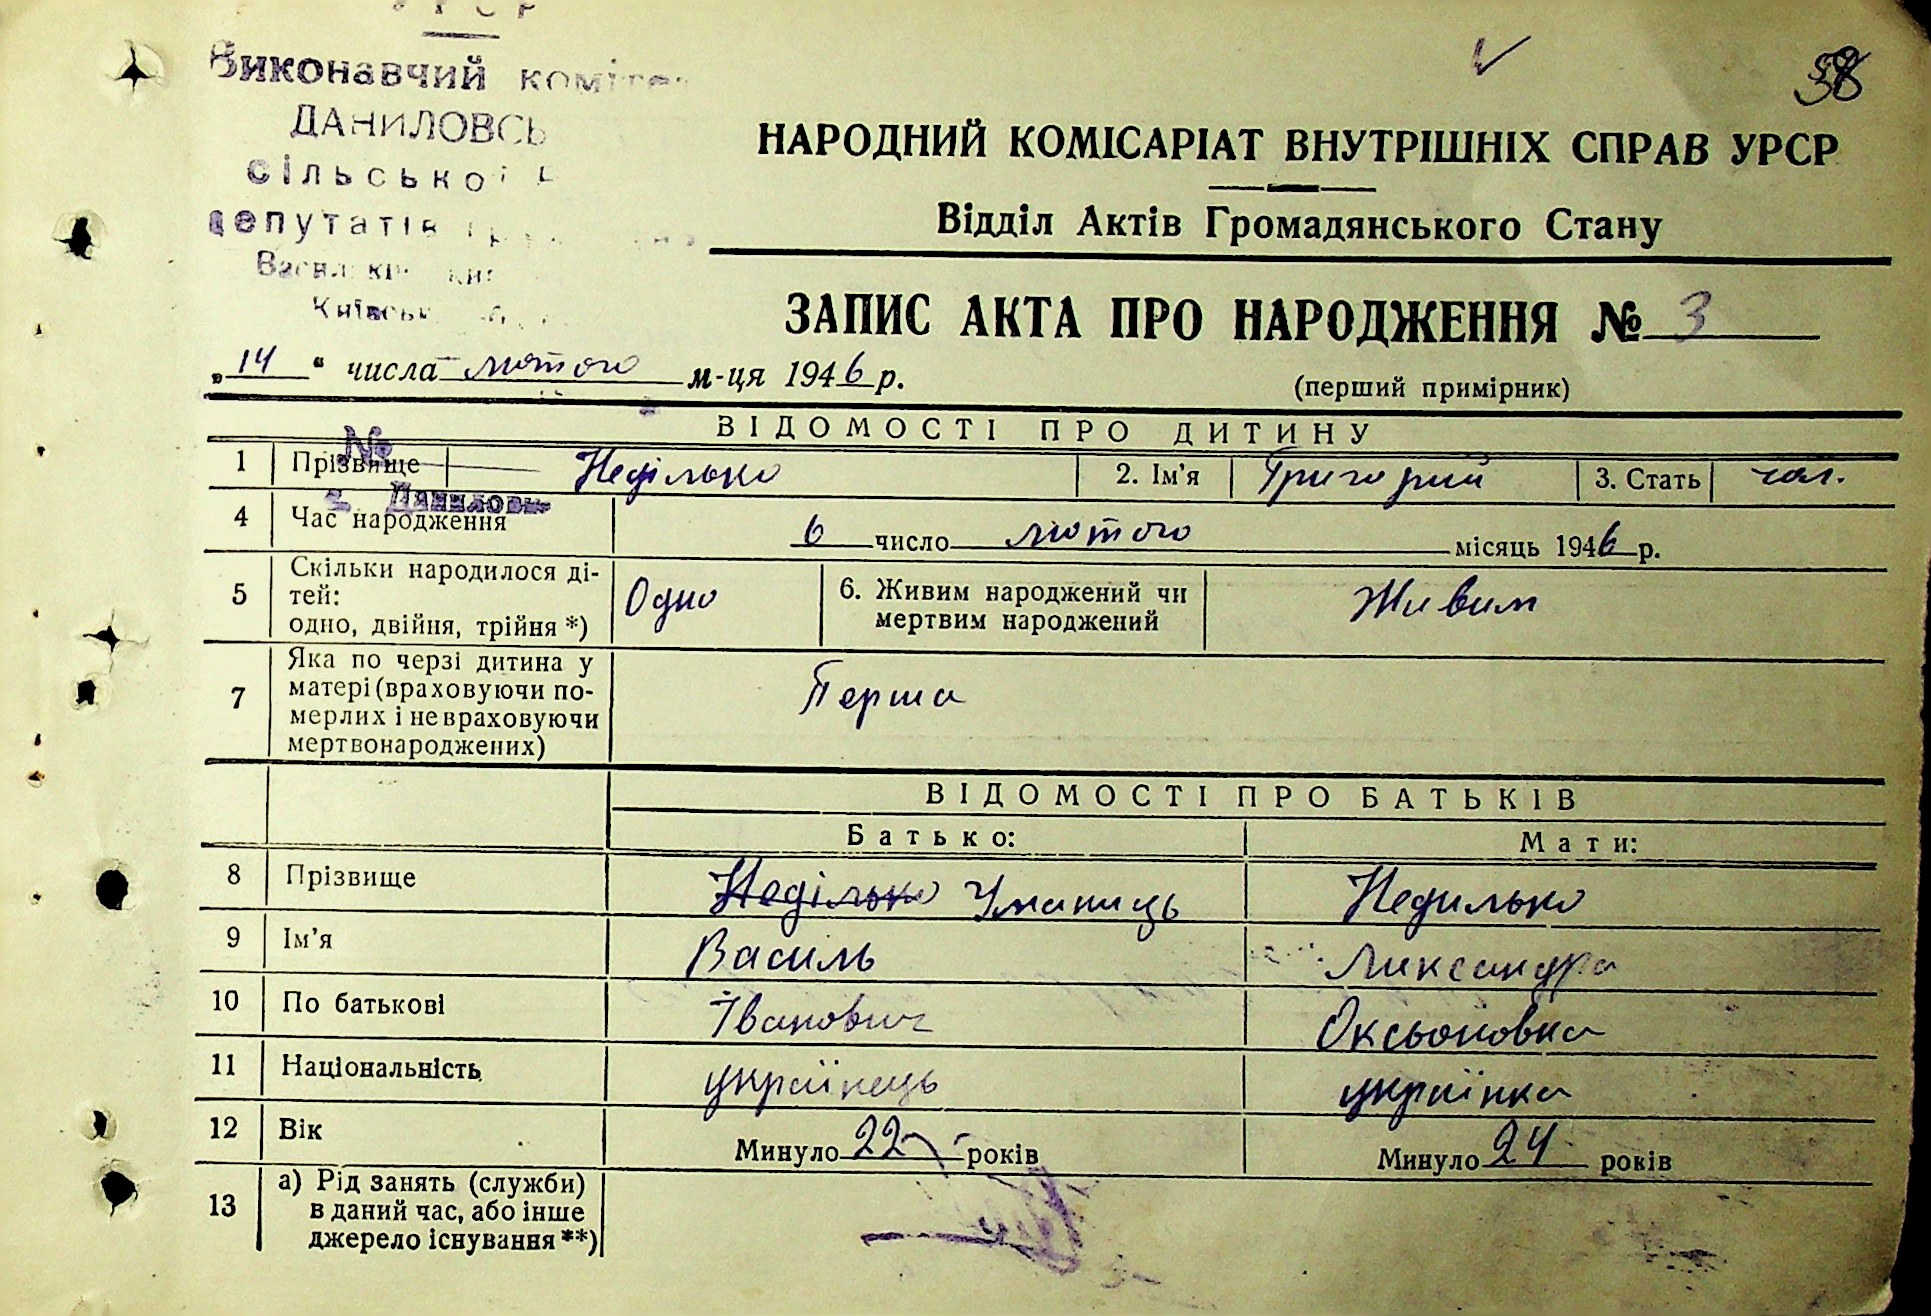 УРСР
Виконавчий коміте
ДАНИЛОВСЬ
сільської
депутатів
Київськ
38
НАРОДНИЙ КОМІСАРІАТ ВНУТРІШНІХ СПРАВ УРСР
Відділ Актів Громадянського Стану
ЗАПИС АКТА ПРО НАРОДЖЕННЯ № 3
„14“ числа лютого м-ця 1946 р.
(перший примірник)
ВІДОМОСТІ ПРО ДИТИНУ
№
1 Прізвище Неділько 2. Ім'я Григорий 3. Стать чол.
с. Данилов
4 Час народження 6 число лютого місяць 1946 р.
5 Скільки народилося ді-
тей:
одно, двійня, трійня *) Одно 6. Живим народжений чи
мертвим народжений Живим
7 Яка по черзі дитина у
матері (враховуючи по-
мерлих і не враховуючи
мертвонароджених) Перша
ВІДОМОСТІ ПРО БАТЬКІВ
Батько: Мати:
8 Прізвище Неділько Уманиць Недилько
9 Ім'я Василь Ликсандра
10 По батькові Іванович Оксьоновка
11 Національність українець українка
12 Вік Минуло 22 років Минуло 24 років
13 а) Рід занять (служби)
в даний час, або інше
джерело існування **)